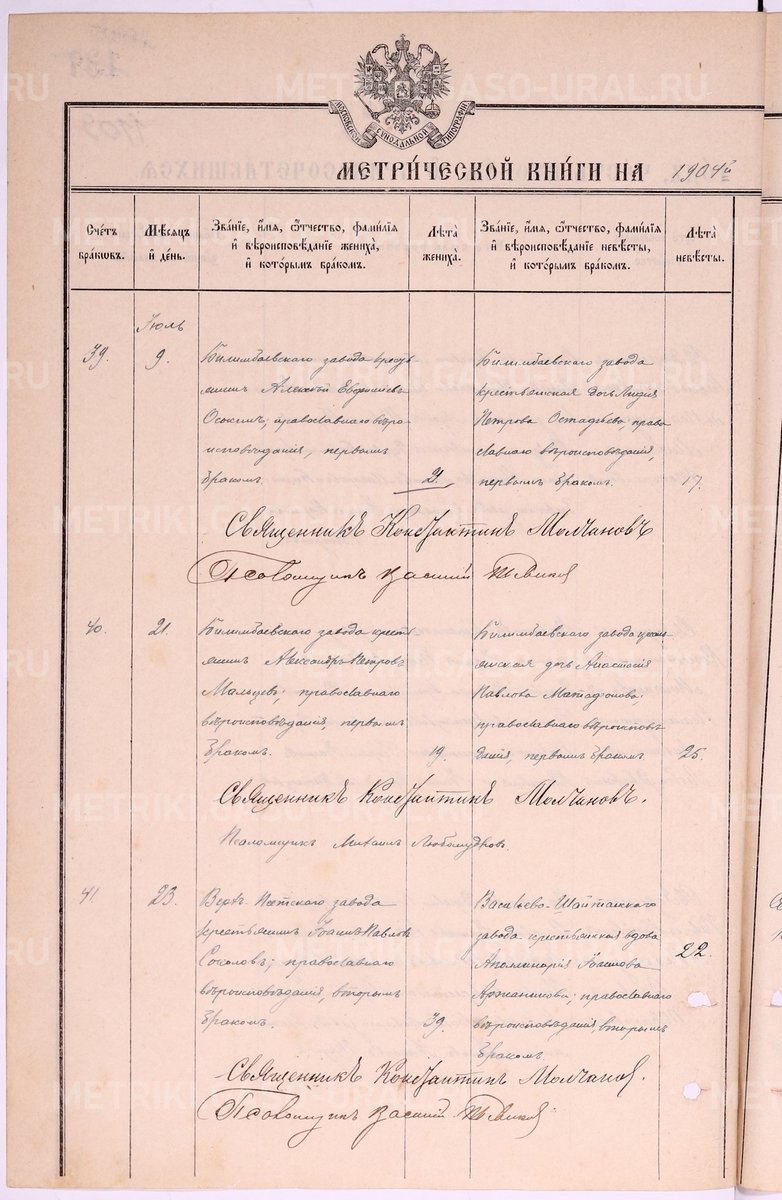 МОСКОВСКОЙ СѴНОДАЛЬНОЙ ТИПОГРАФІИ
МЕТРИ́ЧЕСКОЙ КНИ́ГИ НА 1904 й
Сче́тъ бра́ковъ.
Мѣ́сѧцъ и҆ де́нь.
Зва́нїе, и҆́мѧ, ѻ҆́тчество, фами́лїѧ
и҆ вѣроисповѣ́данїе жениха̀,
и҆ кото́рымъ бра́комъ.
Лѣ́та жениха̀.
Зва́нїе, и҆́мѧ, ѻ҆́тчество, фами́лїѧ
и҆ вѣроисповѣ́данїе невѣ́сты,
и҆ кото́рымъ бра́комъ.
Лѣ́та невѣ́сты.
Іюль
39.
9.
Билимбаевскаго завода кресть-
янинъ Алексѣй Евфиміевъ
Осокинъ; православнаго вѣро
исповѣданія, первымъ
бракомъ.
21.
Билимбаевскаго завода
крестьянская дочь Лидія
Петрова Остафьева, право
славнаго вѣроисповѣданія,
первымъ бракомъ.
17.
Священникъ Константинъ Молчановъ
Псаломщикъ Василій
40.
21.
Билимбаевскаго завода кресть
янинъ Александръ Петровъ
Мальцевъ; православнаго
вѣроисповѣданія, первымъ
бракомъ.
19.
Билимбаевскаго завода кресть-
янская дочь Анастасія
Павлова Матафонова;
православнаго вѣроисповѣ
данія, первымъ бракомъ.
25.
Священникъ Константинъ Молчановъ.
Псаломщикъ Михаилъ Любомудровъ.
41.
23.
Верхъ-Исетскаго завода
крестьянинъ Іоаннъ Павловъ
Соколовъ; православнаго
вѣроисповѣданія, вторымъ
бракомъ.
39.
Васильево-Шайтанскаго
завода крестьянская вдова
Аполлинарія Іоаннова
Аржанникова; православнаго
вѣроисповѣданія, вторымъ
бракомъ.
22.
Священникъ Константинъ Молчановъ.
Псаломщикъ Василій